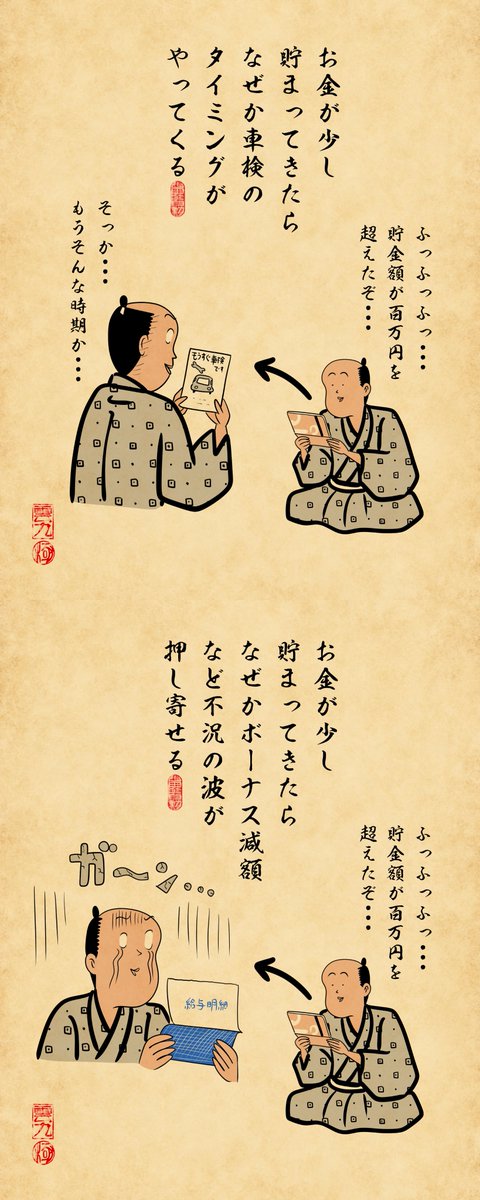 お金が少し
貯まってきたら
なぜか車検の
タイミングが
やってくる
ふっふっふっ・・・
貯金額が百万円を
超えたぞ・・・
そっか・・・
もうそんな時期か・・・
もうすぐ車検
です
お金が少し
貯まってきたら
なぜかボーナス減額
など不況の波が
押し寄せる
ふっふっふっ・・・
貯金額が百万円を
超えたぞ・・・
ガ〜ン・・・
給与明細